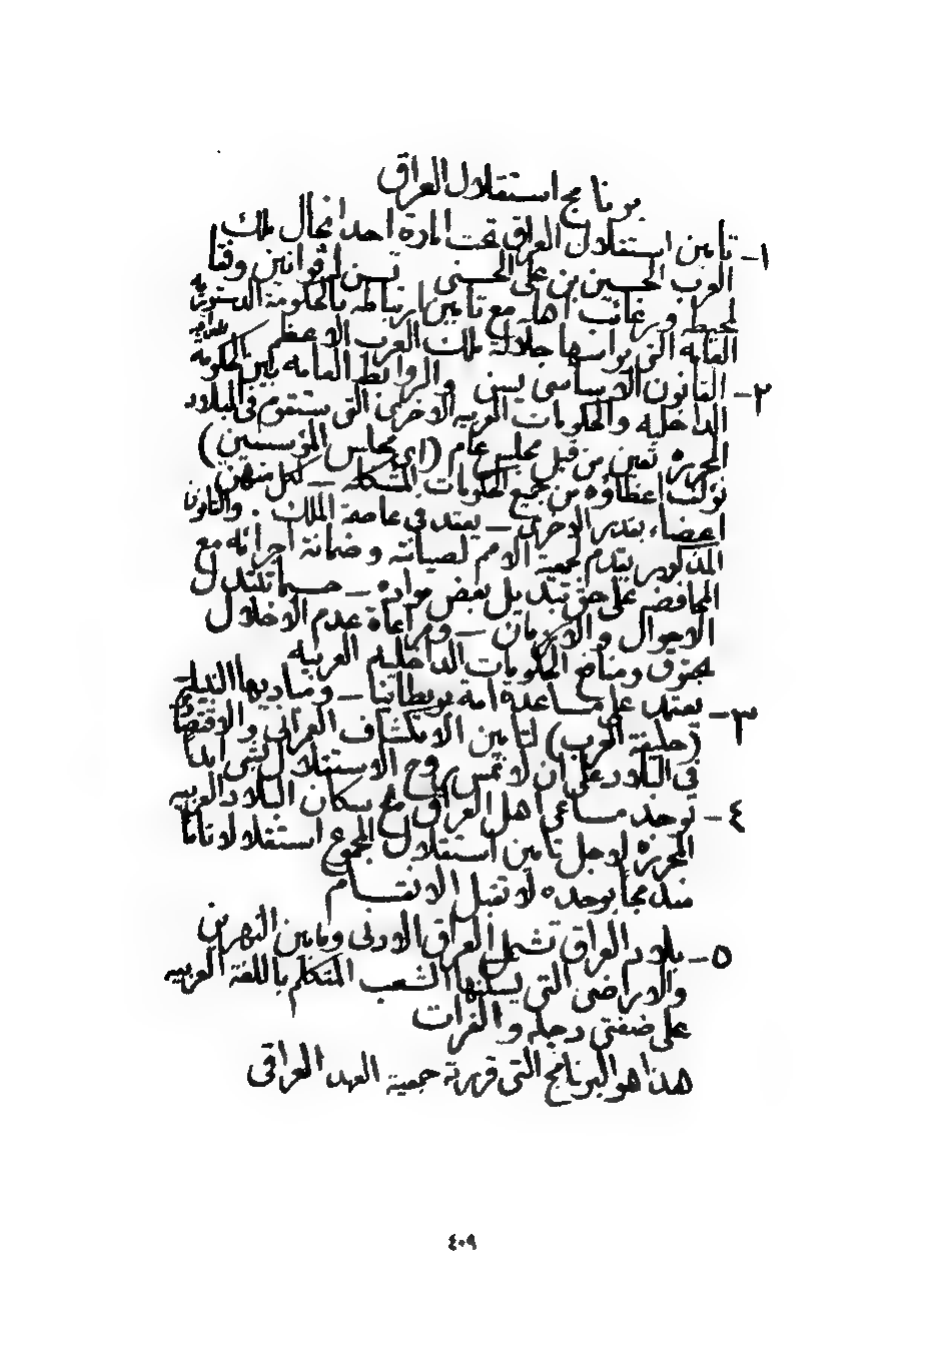 برنامج استقلال العراق
١- تأمين استقلال العراق تحت امارة احد انجال ملك
العرب الحسين بن علي الحسني تسن له قوانين وفقا
لمحيطه ورغائب اهله مع تأمين ارتباطه بالحكومة الدستوريه
العامه التي يرأسها جلالة ملك العرب الاعظم
٢- القانون الاساسي يسن والروابط العامه بين الحكومة
الداخليه والحكومات العربيه الاخرى التي ستقوم في البلاد
المحرره تعين من قبل مجلس عام (اي مجلس المؤسسين)
تؤلف اعضاؤه من جميع الحكومات المشكله - لكل منهن
اعضاء بقدر الاخرى - يعقد في عاصمة الملك . والقانون
المذكور يقدم لجمعية الامم لصيانته وضمانة اجرائه مع
المحافضه على حق تبديل بعض مواده - حسبما تقتضي
الاحوال والازمان - ومراعاة عدم الاخلال
بحقوق ومنافع الحكومات الداخليه العربيه
٣- يعتمد على مساعدة امة بريطانيا - ومباديها النبيله
(حليفة العرب) لتأمين الانكشاف العمراني والاقتصادي
في البلاد على ان لا تمس روح الاستقلال بشي ابدا
٤- توحد مساعي اهل العراق مع سكان البلاد العربيه
المحرره لاجل تأمين استقلال المجموع استقلالا تاما
مندمجا بوحده لا تقبل الانقسام
٥- بلاد العراق تشمل العراق الادنى ومابين النهرين
والاراضي التي يسكنها الشعب المتكلم باللغة العربيه
على ضفتي دجله والفرات
هذا هو البرنامج التي قررته جمعية العهد العراقي
٤٠٩